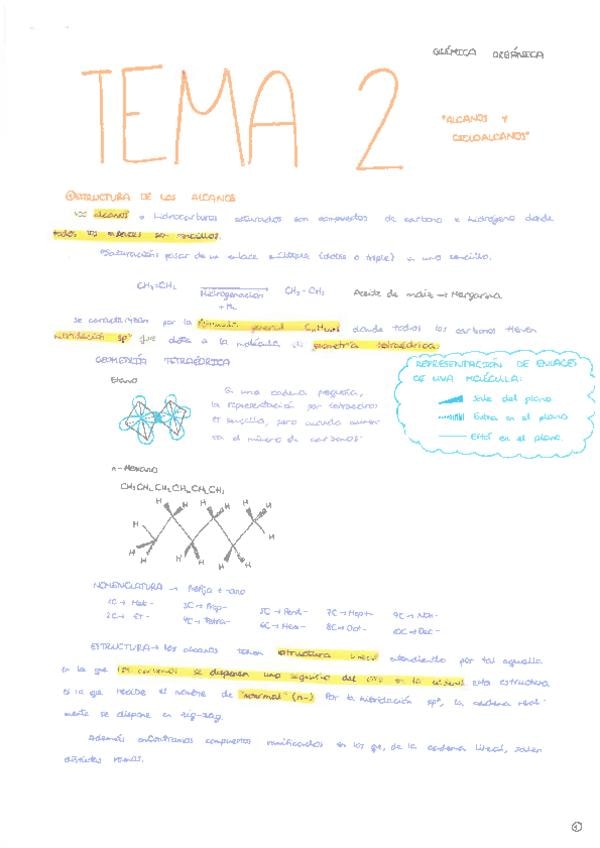 QUÍMICA ORGÁNICA
TEMA 2
"ALCANOS Y
CICLOALCANOS"
① ESTRUCTURA DE LOS ALCANOS
Los alcanos o hidrocarburos saturados son compuestos de carbono e hidrógeno donde
todos los enlaces son sencillos.
Saturación: pasar de un enlace múltiple (doble o triple) a uno sencillo.
CH₂=CH₂ Hidrogenación + H₂ CH₃-CH₃ Aceite de maíz → Margarina
Se caracterizan por la fórmula general donde todos los carbonos tienen
hibridación sp³ que dota a la molécula de geometría tetraédrica.
GEOMETRÍA TETRAÉDRICA
Etano
En una cadena pequeña,
la representación por tetraedros
es sencilla, pero cuando aumen-
ta el número de carbonos
REPRESENTACIÓN DE ENLACES
DE UNA MOLÉCULA:
Sale del plano.
Entra en el plano
Está en el plano.
n-Hexano
CH₃CH₂CH₂CH₂CH₂CH₃
H H H H H H
H H
H H H H H
NOMENCLATURA → Prefijo + -ano
1C → Met- 3C → Prop- 5C → Pent- 7C → Hept- 9C → Non-
2C → Et- 4C → Tetra- 6C → Hexa- 8C → Oct- 10C → Dec-
ESTRUCTURA → Los alcanos tienen estructura lineal entendiendo por tal aquella
en la que los carbonos se disponen uno seguido del otro en la cadena. Esta estructura
es la que recibe el nombre de "normal" (n-) Por la hibridación sp³, la cadena real-
mente se dispone en zig-zag.
Además encontramos compuestos ramificados en los que, de la cadena lineal, salen
distintas ramas.
1